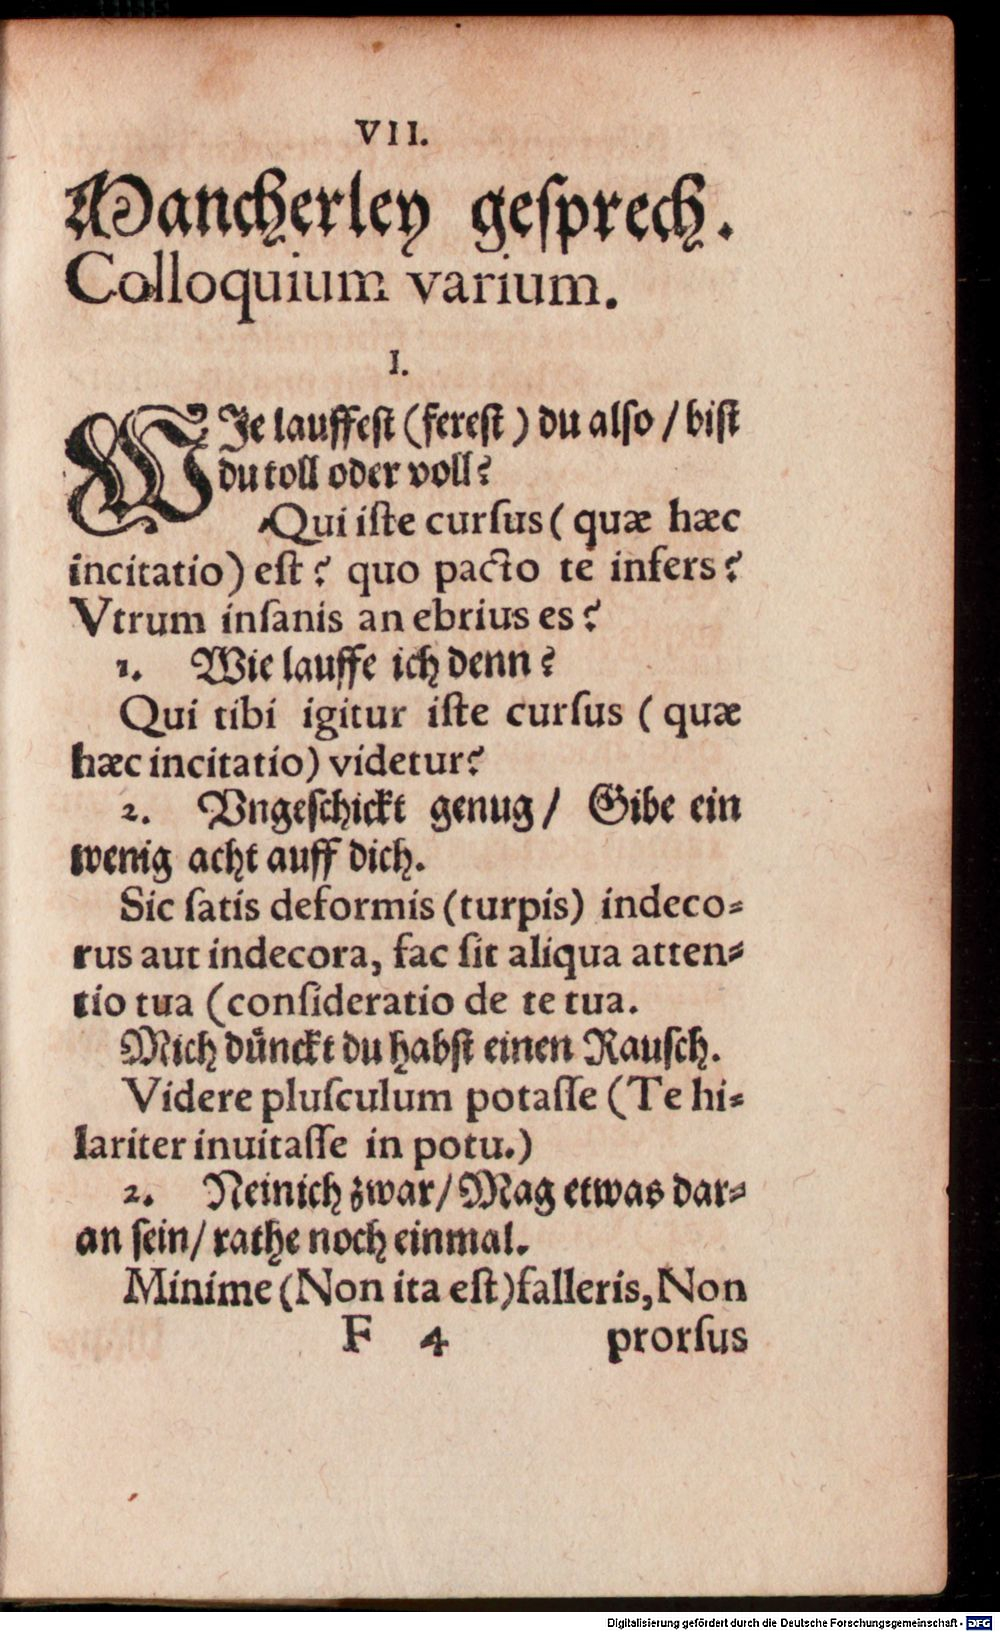 VII.
Mancherley gesprech.
Colloquium varium.
I.
WJe lauffest (ferest) du also / bist
du toll oder voll?
Qui iste cursus (quæ hæc
incitatio) est? quo pacto te infers?
Vtrum insanis an ebrius es?
1. Wie lauffe ich denn?
Qui tibi igitur iste cursus (quæ
hæc incitatio) videtur?
2. Vngeschickt genug / Gibe ein
wenig acht auff dich.
Sic satis deformis (turpis) indeco-
rus aut indecora, fac sit aliqua atten-
tio tua (consideratio de te tua.
Mich dünckt du habst einen Rausch.
Videre plusculum potasse (Te hi-
lariter inuitasse in potu.)
2. Neinich zwar / Mag etwas dar-
an sein / rathe noch einmal.
Minime (Non ita est) falleris, Non
F 4 prorsus
Digitalisierung gefördert durch die Deutsche Forschungsgemeinschaft - DFG